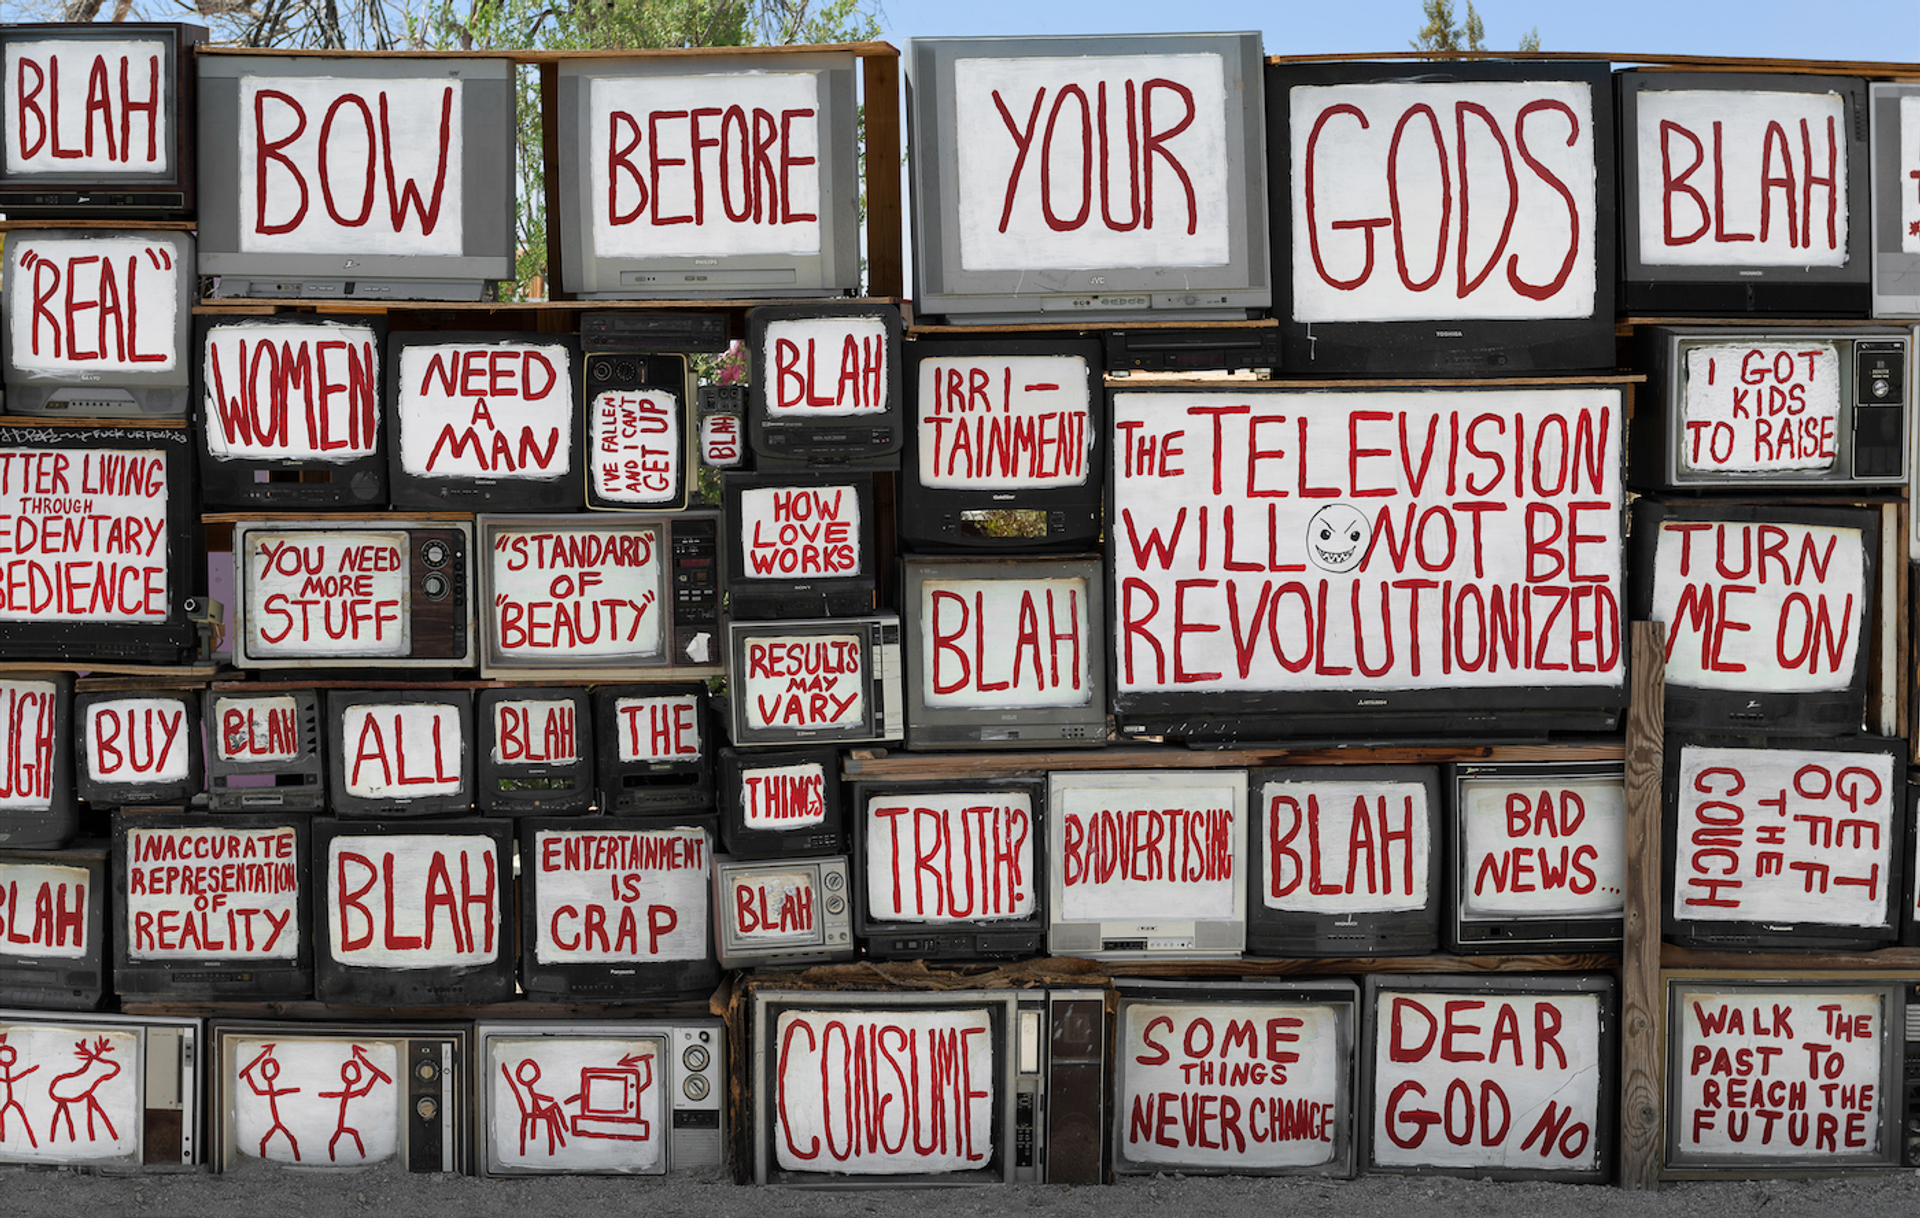 BLAH
BOW
BEFORE
YOUR
GODS
BLAH
"REAL"
WOMEN
NEED
A
MAN
I'VE FALLEN
AND I CAN'T
GET UP
BLAH
BLAH
IRRI-
TAINMENT
THE TELEVISION
WILL NOT BE
REVOLUTIONIZED
I GOT
KIDS
TO RAISE
TTER LIVING
THROUGH
EDENTARY
BEDIENCE
YOU NEED
MORE
STUFF
"STANDARD"
OF
"BEAUTY"
HOW
LOVE
WORKS
BLAH
TURN
ME ON
RESULTS
MAY
VARY
UGH
BUY
BLAH
ALL
BLAH
THE
THINGS
TRUTH?
BADVERTISING
BLAH
BAD
NEWS...
GET
OFF
THE
COUCH
BLAH
INACCURATE
REPRESENTATION
OF
REALITY
BLAH
ENTERTAINMENT
IS
CRAP
BLAH
CONSUME
SOME
THINGS
NEVER CHANGE
DEAR
GOD NO
WALK THE
PAST TO
REACH THE
FUTURE
PHILIPS
JVC
TOSHIBA
SANYO
GoldStar
SONY
RCA
MITSUBISHI
Panasonic
Panasonic